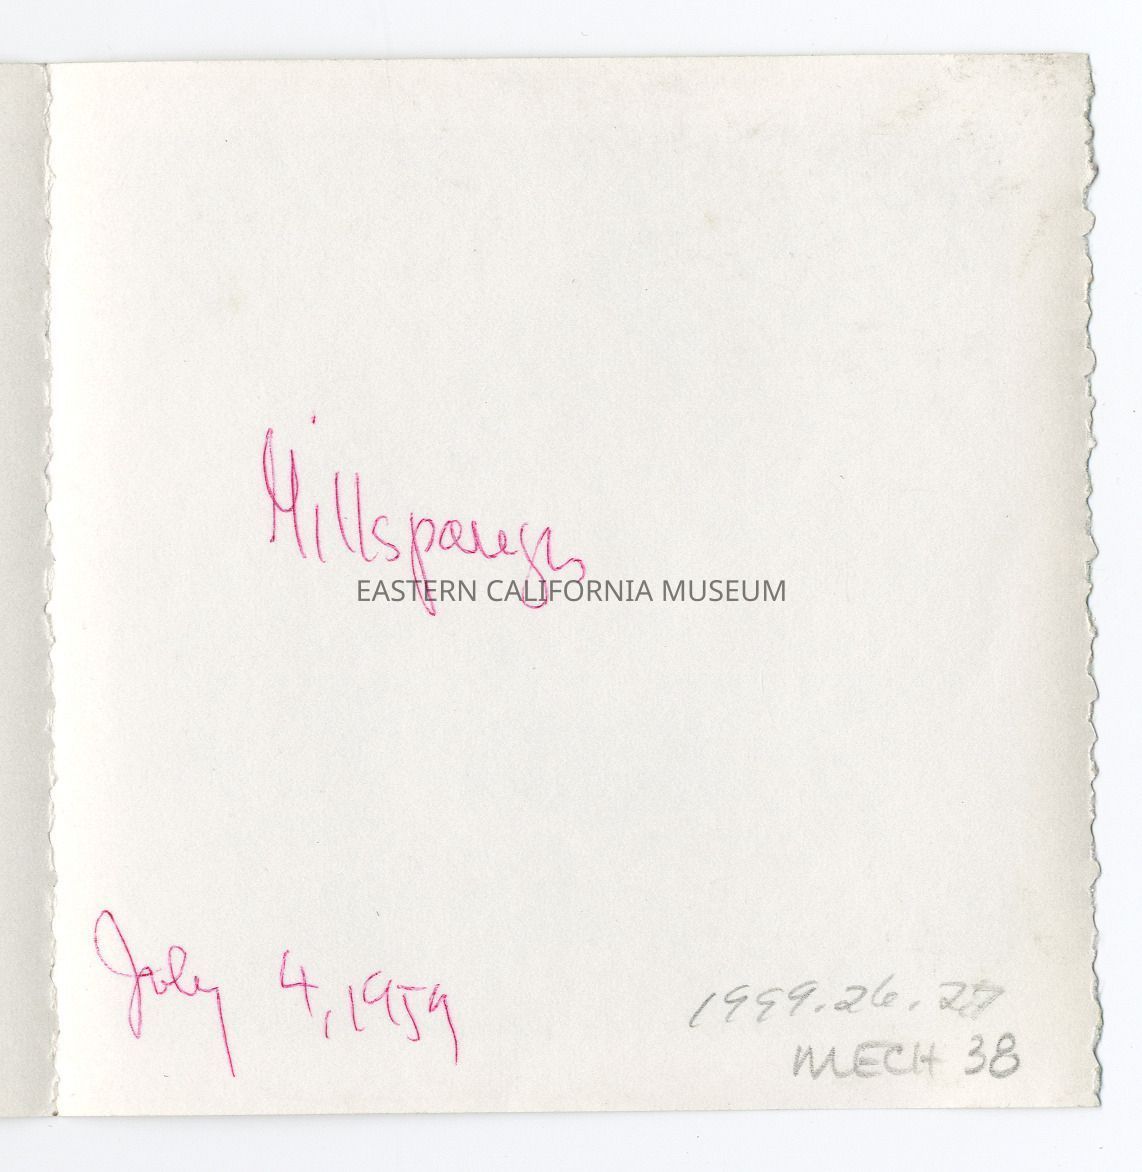 Millspaugh
EASTERN CALIFORNIA MUSEUM
July 4, 1959
1999.26.27
MECH 38